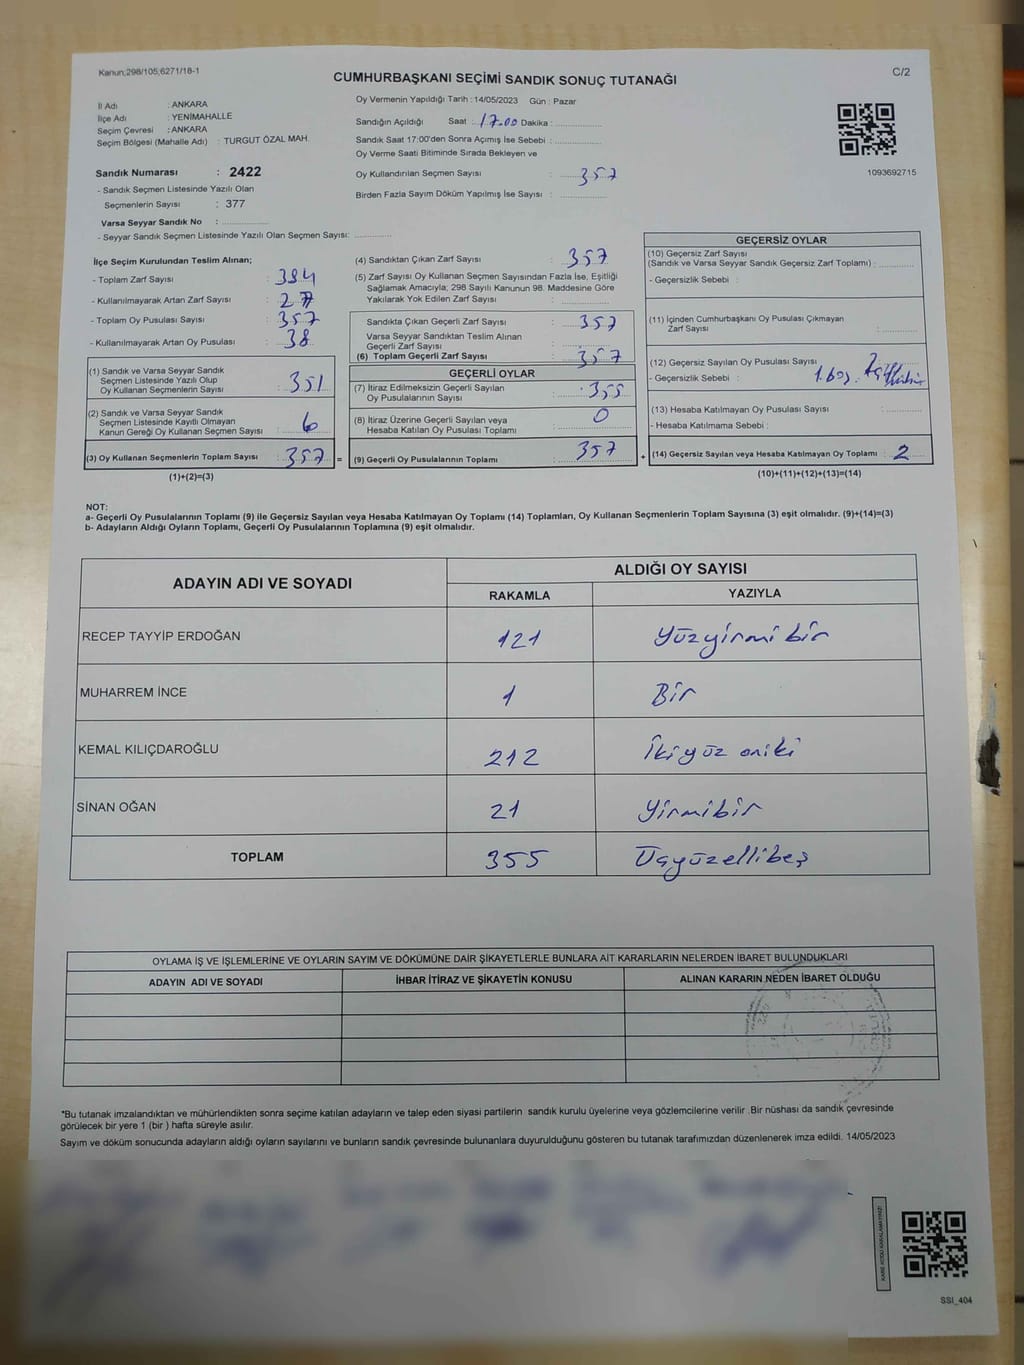 Kanun;298/105;6271/18-1
CUMHURBAŞKANI SEÇİMİ SANDIK SONUÇ TUTANAĞI
C/2
İl Adı : ANKARA
İlçe Adı : YENİMAHALLE
Seçim Çevresi : ANKARA
Seçim Bölgesi (Mahalle Adı) : TURGUT ÖZAL MAH.
Sandık Numarası : 2422
- Sandık Seçmen Listesinde Yazılı Olan
Seçmenlerin Sayısı : 377
Varsa Seyyar Sandık No :
- Seyyar Sandık Seçmen Listesinde Yazılı Olan Seçmen Sayısı:
Oy Vermenin Yapıldığı Tarih : 14/05/2023 Gün : Pazar
Sandığın Açıldığı Saat : 17.00 Dakika :
Sandık Saat 17:00'den Sonra Açımış İse Sebebi :
Oy Verme Saati Bitiminde Sırada Bekleyen ve
Oy Kullandırılan Seçmen Sayısı : 357
Birden Fazla Sayım Döküm Yapılmış İse Sayısı :
1093692715
İlçe Seçim Kurulundan Teslim Alınan;
- Toplam Zarf Sayısı : 384
- Kullanılmayarak Artan Zarf Sayısı : 27
- Toplam Oy Pusulası Sayısı : 357
- Kullanılmayarak Artan Oy Pusulası : 38
(1) Sandık ve Varsa Seyyar Sandık
Seçmen Listesinde Yazılı Olup
Oy Kullanan Seçmenlerin Sayısı : 351
(2) Sandık ve Varsa Seyyar Sandık
Seçmen Listesinde Kayıtlı Olmayan
Kanun Gereği Oy Kullanan Seçmen Sayısı : 6
(3) Oy Kullanan Seçmenlerin Toplam Sayısı : 357 =
(1)+(2)=(3)
(4) Sandıktan Çıkan Zarf Sayısı : 357
(5) Zarf Sayısı Oy Kullanan Seçmen Sayısından Fazla İse, Eşitliği
Sağlamak Amacıyla; 298 Sayılı Kanunun 98. Maddesine Göre
Yakılarak Yok Edilen Zarf Sayısı :
Sandıkta Çıkan Geçerli Zarf Sayısı : 357
Varsa Seyyar Sandıktan Teslim Alınan
Geçerli Zarf Sayısı :
(6) Toplam Geçerli Zarf Sayısı : 357
GEÇERLİ OYLAR
(7) İtiraz Edilmeksizin Geçerli Sayılan
Oy Pusulalarının Sayısı : 355
(8) İtiraz Üzerine Geçerli Sayılan veya
Hesaba Katılan Oy Pusulası Toplamı : 0
(9) Geçerli Oy Pusulalarının Toplamı : 357 +
GEÇERSİZ OYLAR
(10) Geçersiz Zarf Sayısı
(Sandık ve Varsa Seyyar Sandık Geçersiz Zarf Toplamı) :
- Geçersizlik Sebebi :
(11) İçinden Cumhurbaşkanı Oy Pusulası Çıkmayan
Zarf Sayısı :
(12) Geçersiz Sayılan Oy Pusulası Sayısı : 2
- Geçersizlik Sebebi : 1.boş.
(13) Hesaba Katılmayan Oy Pusulası Sayısı :
- Hesaba Katılmama Sebebi :
(14) Geçersiz Sayılan veya Hesaba Katılmayan Oy Toplamı : 2
(10)+(11)+(12)+(13)=(14)
NOT:
a- Geçerli Oy Pusulalarının Toplamı (9) ile Geçersiz Sayılan veya Hesaba Katılmayan Oy Toplamı (14) Toplamları, Oy Kullanan Seçmenlerin Toplam Sayısına (3) eşit olmalıdır. (9)+(14)=(3)
b- Adayların Aldığı Oyların Toplamı, Geçerli Oy Pusulalarının Toplamına (9) eşit olmalıdır.
ADAYIN ADI VE SOYADI
ALDIĞI OY SAYISI
RAKAMLA YAZIYLA
RECEP TAYYİP ERDOĞAN 121 Yüzyirmi bir
MUHARREM İNCE 1 Bir
KEMAL KILIÇDAROĞLU 212 İkiyüz oniki
SİNAN OĞAN 21 Yirmibir
TOPLAM 355 Üçyüzellibeş
OYLAMA İŞ VE İŞLEMLERİNE VE OYLARIN SAYIM VE DÖKÜMÜNE DAİR ŞİKAYETLERLE BUNLARA AİT KARARLARIN NELERDEN İBARET BULUNDUKLARI
ADAYIN ADI VE SOYADI İHBAR İTİRAZ VE ŞİKAYETİN KONUSU ALINAN KARARIN NEDEN İBARET OLDUĞU
*Bu tutanak imzalandıktan ve mühürlendikten sonra seçime katılan adayların ve talep eden siyasi partilerin sandık kurulu üyelerine veya gözlemcilerine verilir .Bir nüshası da sandık çevresinde
görülecek bir yere 1 (bir ) hafta süreyle asılır.
Sayım ve döküm sonucunda adayların aldığı oyların sayılarını ve bunların sandık çevresinde bulunanlara duyurulduğunu gösteren bu tutanak tarafımızdan düzenlenerek imza edildi. 14/05/2023
KARE KODU KARALAMAYINIZ!
SSI_404